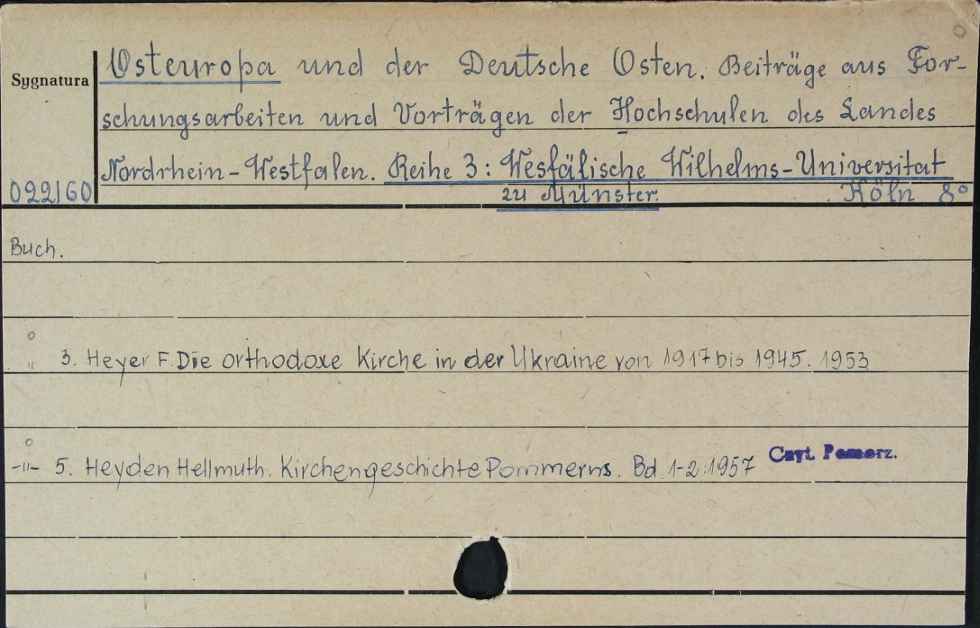 Osteuropa und der Deutsche Osten. Beiträge aus For-
Sygnatura
schungsarbeiten und Vorträgen der Hochschulen des Landes
Nordrhein-Westfalen. Reihe 3: Wesfälische Wilhelms-Universitat
022160 zu Münster. Köln 8°
Buch.
" 3. Heyer F. Die orthodoxe Kirche in der Ukraine von 1917 bis 1945. 1953
-"- 5. Heyden Hellmuth. Kirchengeschichte Pommerns. Bd. 1-2. 1957 Czyt. Pomorz.